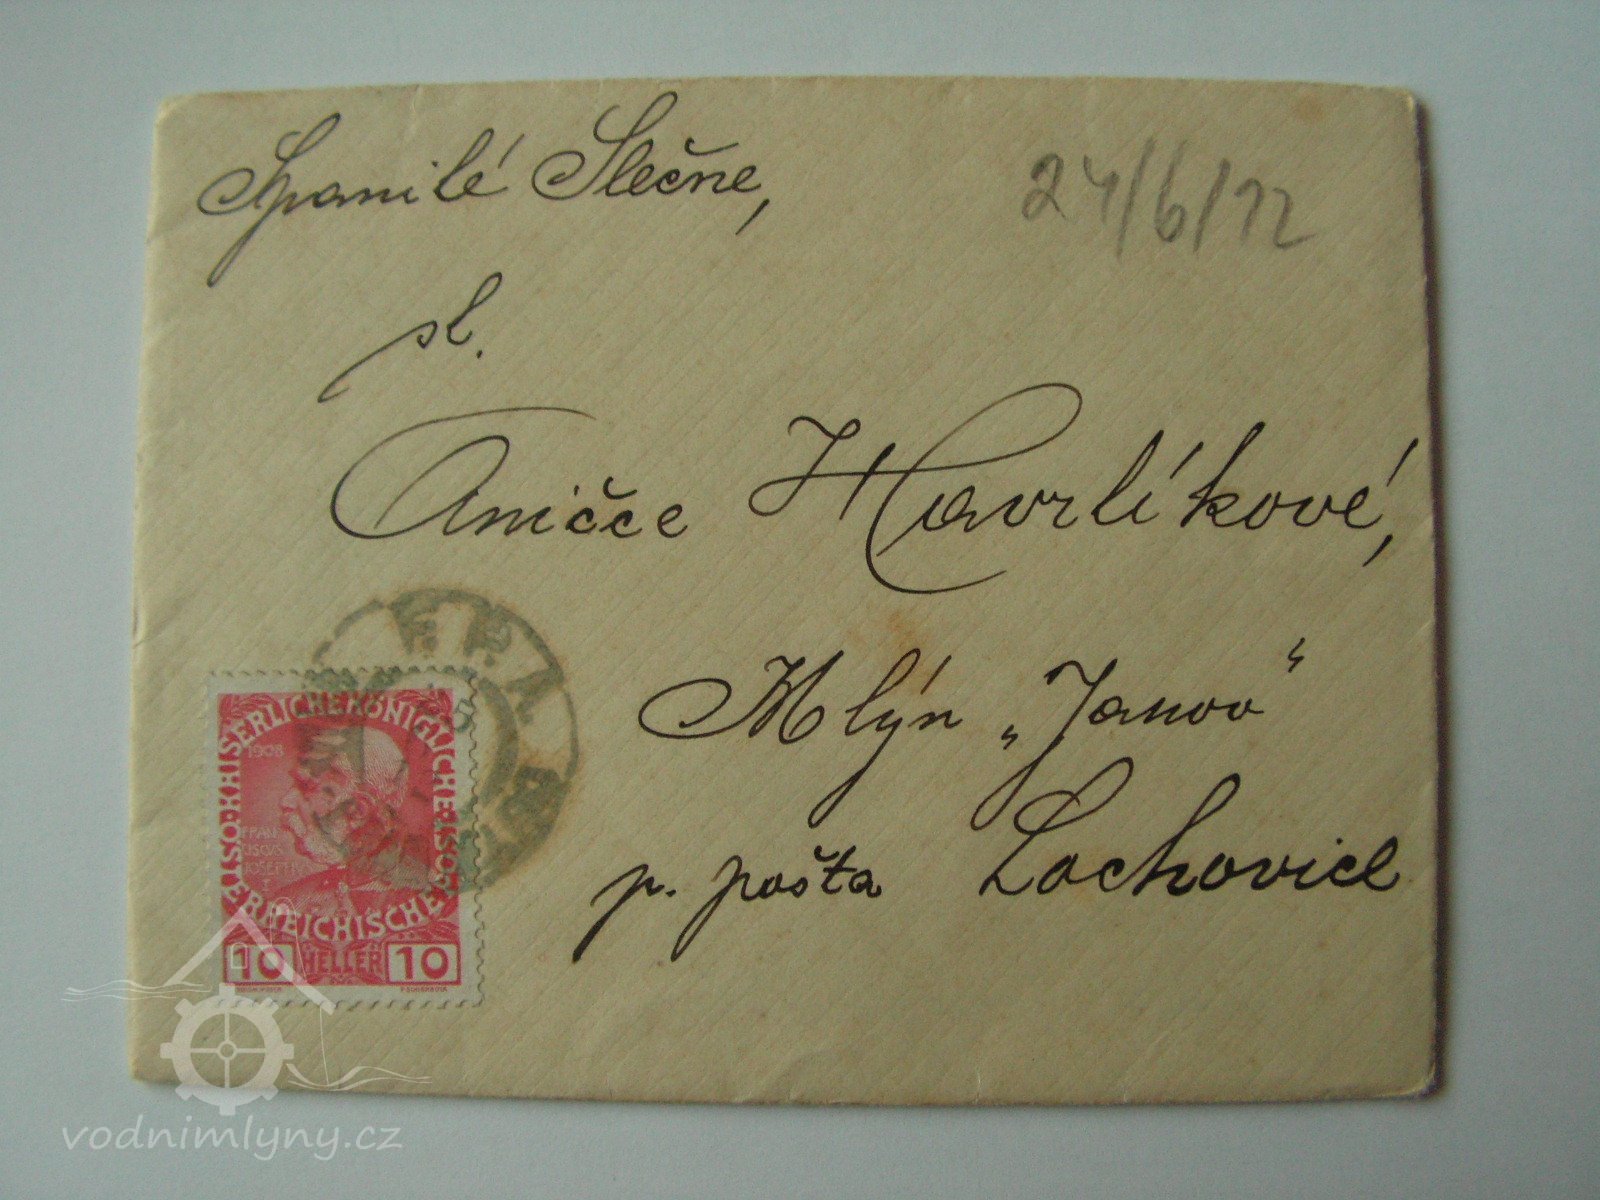 Spanilé Slečne,
24/6/12
sl.
Aničce Havrlíkové,
Mlýn „Janov“
p. pošta Lochovice
KAISERLICHEKÖNIGLICHE
ÖSTERREICHISCHE
1908
FRAN
CISCVS
JOSEPH
I
10 HELLER 10
vodnimlyny.cz